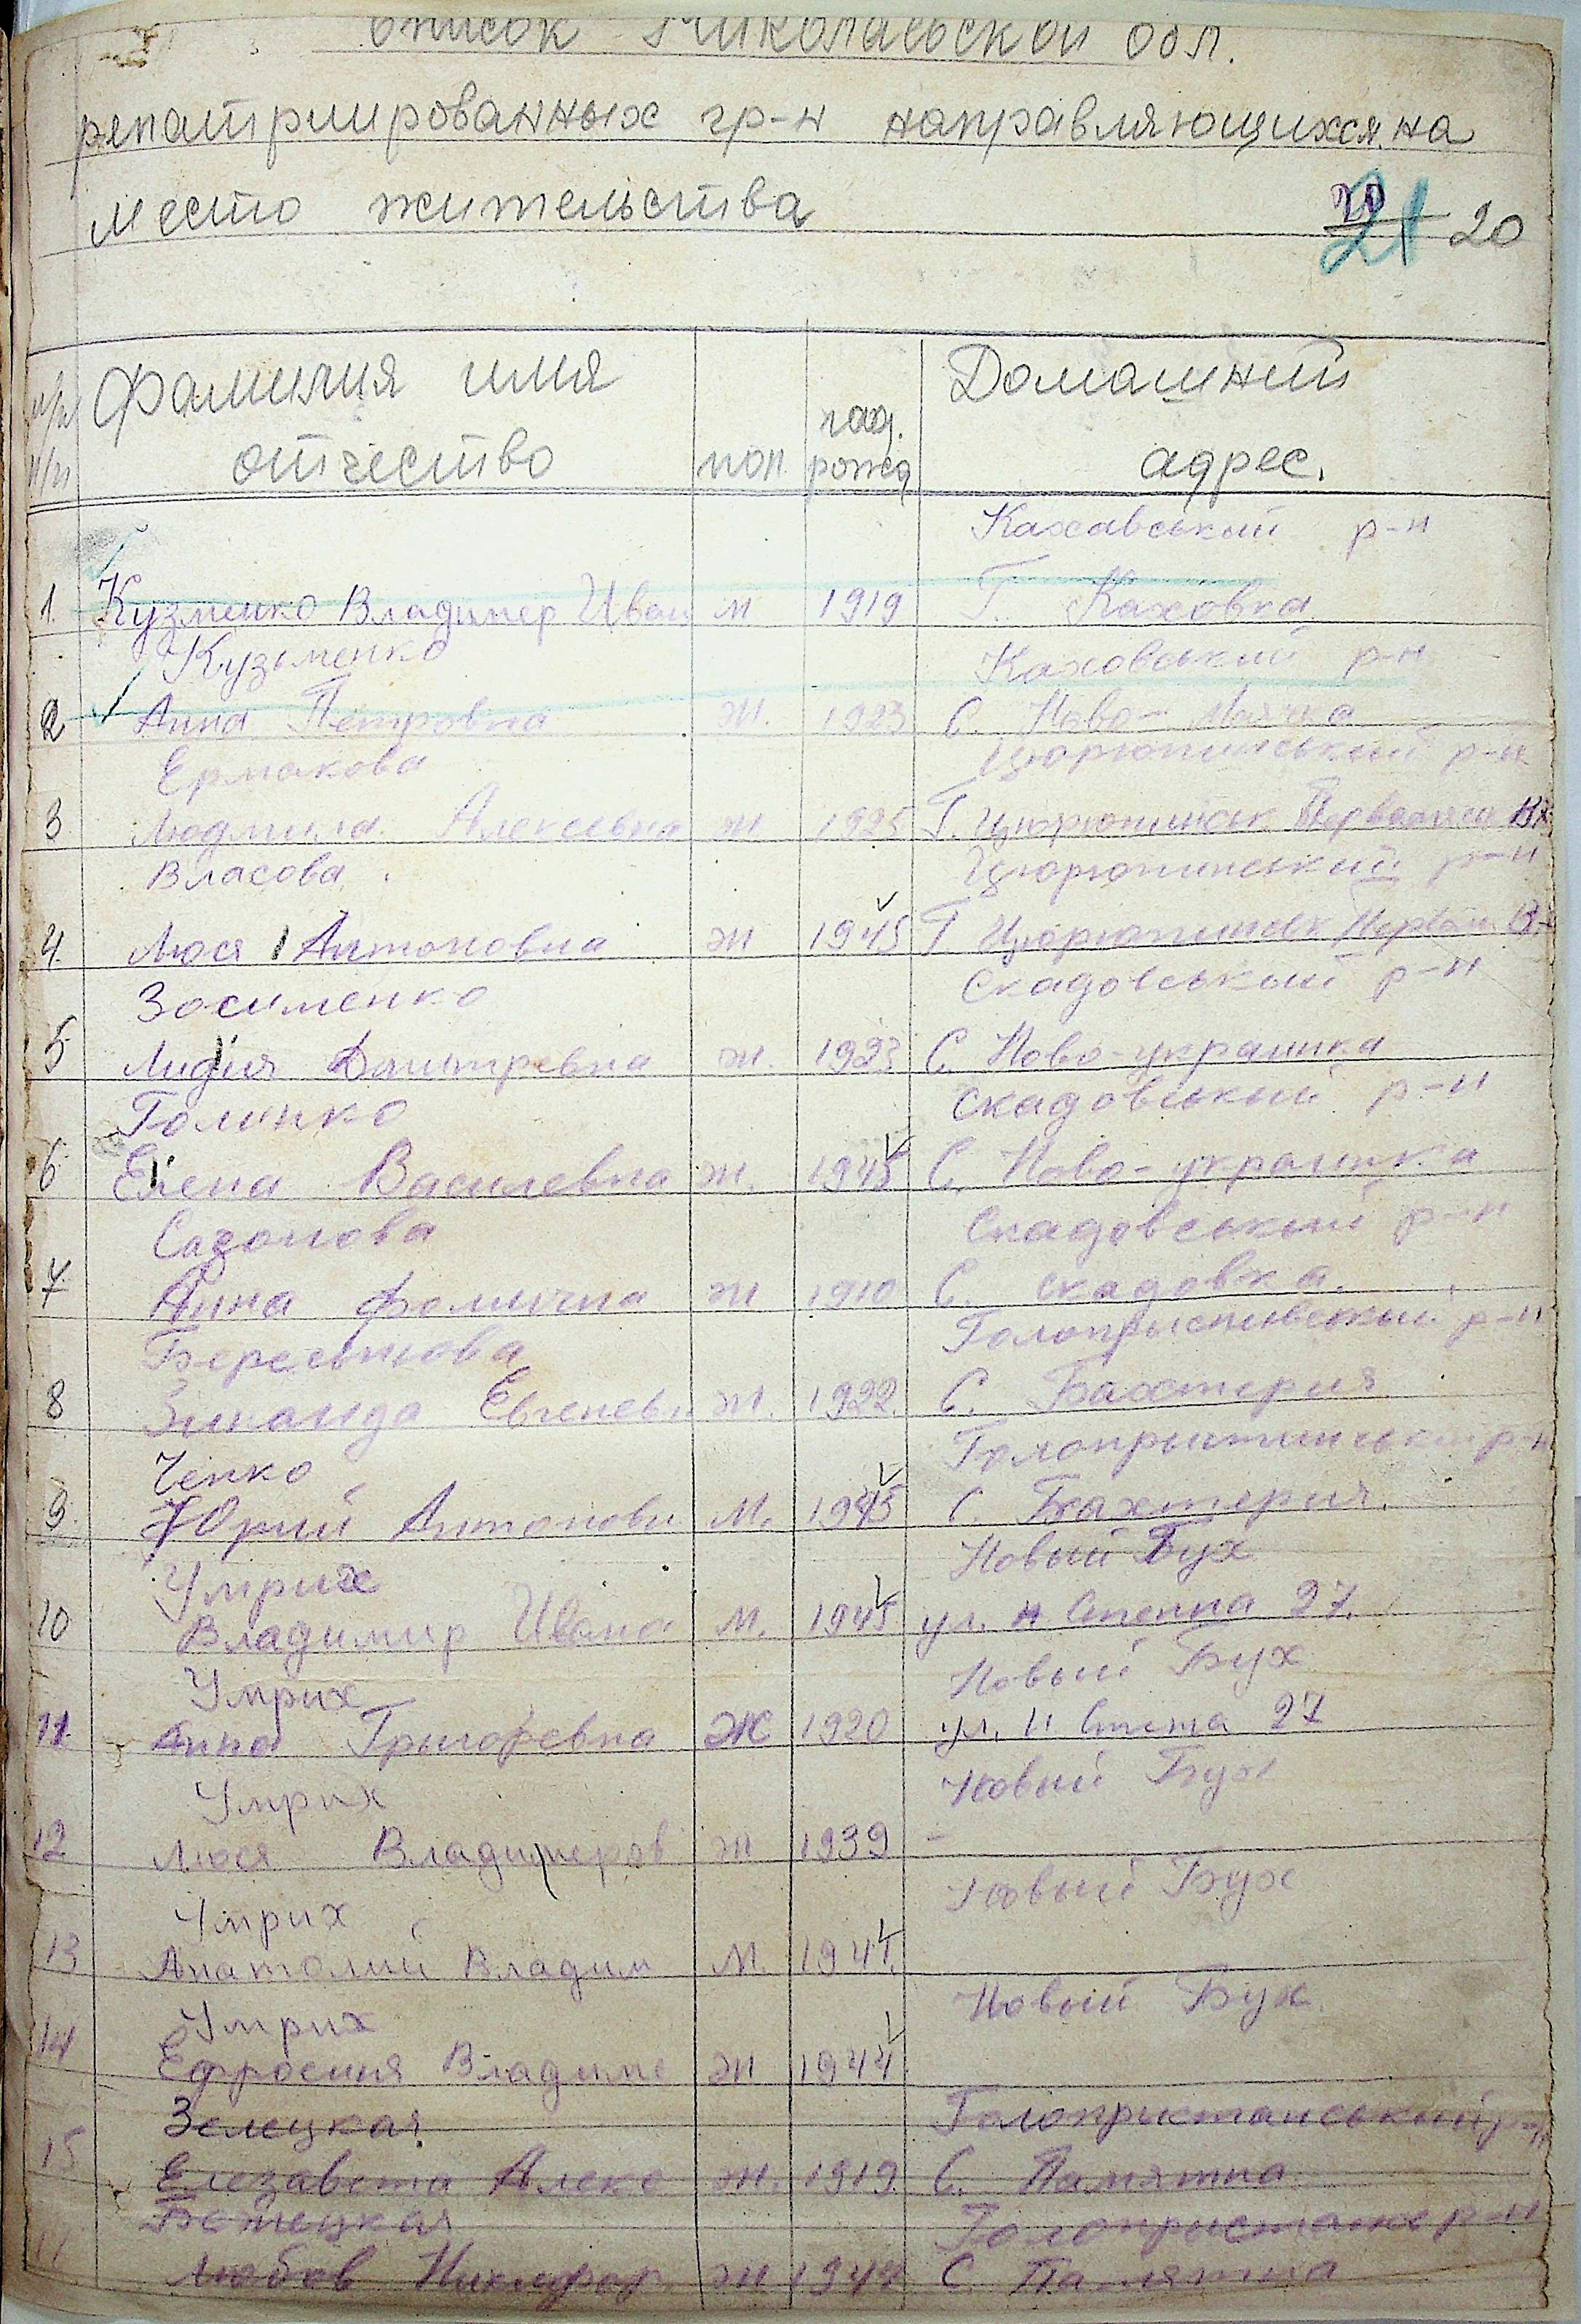 Список Николаевской обл.
репатриированных гр-н направляющихся на
место жительства
20 21 20
Фамилия имя Домашний
год.
отчество пол рожд адрес.
Кахавський р-н
1. Кузменко Владимер Иван м 1919 Г. Каховка
Кузьменко Каховський р-н
2 Анна Петровна ж. 1923 С. Ново-Маячка
Ермакова Цюрюпинський р-н
3 Людмила Алексевна ж 1925 Г. Цюрюпинск
Власова Цюрюпинський р-н
4. Люся Антоновна ж 1945 Г Цюрюпинск
Зосименко Скадовський р-н
5 Лидия Дмитревна ж. 1923 С. Ново-украинка
Голинко Скадовський р-н
6 Елена Василевна ж. 1945 С. Ново-украинка
Сазонова Скадовський р-н
7 Анна Фомична ж 1910 С. Скадовка.
р-н
8 Зинаида Евгеневн ж. 1922. С. Бахтерия
Ченко р-н
9. Юрий Антонови М. 1945 С. Бахтерия.
Умрих Новый Бух
10 Владимир Ивана М. 1945 ул. 27.
Умрих Новый Бух
11. Анна Григоревна Ж 1920 ул. 27
Умрих Новый Бух
12 Люся Владимеров ж 1939 -
Умрих Новый Бух
13 Анатолий Владим М. 1941.
Умрих Новый Бух
14 Ефросиня Владиме ж 1944
Зелецкая Голопристанський р-н
15 Елезавета Алекс ж. 1919 С. Памятна
Голопристанск р-н
Любов Никифор. ж 1944 С. Памятна